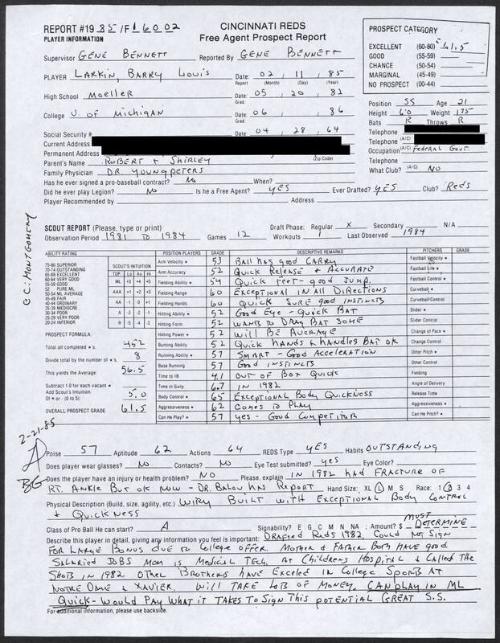 REPORT #19 85/F1 6002
CINCINNATI REDS
Free Agent Prospect Report
PLAYER INFORMATION
Supervisor GENE BENNETT Reported By GENE BENNETT
PLAYER LARKIN, BARRY LOUIS Date: 02 11 85
Report (Month) (Day) (Year)
High School MOELLER Date: 05 20 82
Grad.
College U. OF MICHIGAN Date: 06 86
Grad.
Social Security # Date: 04 28 64
Current Address
Permanent Address
Parent's Name ROBERT & SHIRLEY
Family Physician DR YOUNGPETERS
Has he ever signed a pro-baseball contract? NO When?
Did he ever play Legion? NO Is he a Free Agent? YES Ever Drafted? YES Club? REDS
Player Recommended by Address
PROSPECT CATEGORY
EXCELLENT (60-80) 61.5
GOOD (55-59)
CHANCE (50-54)
MARGINAL (45-49)
NO PROSPECT (00-44)
Position SS Age 21
Height 6'0 Weight 175
Bats R Throws R
Telephone
Telephone (A/C)
Occupation FEDERAL GOVT
Telephone (A/C)
What Club? NO
C.C. MONTGOMERY
SCOUT REPORT (Please, type or print) Draft Phase: Regular X Secondary N/A
Observation Period 1981 TO 1984 Games 12 Workouts 1 Last Observed 1984
ABILITY RATING
SCOUT'S INTUITION
POSITION PLAYERS GRADE DESCRIPTIVE REMARKS PITCHERS GRADE
Arm Velocity 53 BALL HAS GOOD CARRY Fastball Velocity
Arm Accuracy 52 QUICK RELEASE & ACCURATE Fastball Life
Fielding Ability 54 QUICK FEET - GOOD JUMP. Fastball Control
Fielding Range 60 EXCEPTIONAL IN ALL DIRECTIONS Curveball
Fielding Hands 60 QUICK SURE GOOD INSTINCTS Curveball Control
Hitting Ability 52 GOOD EYE - QUICK BAT Slider
52 WANTS TO DRAG BAT SOME Slider Control
Hitting Power 52 WILL BE AVERAGE Change of Pace
52 QUICK HANDS & HANDLES BAT OK Change Control
Running Ability 57 SMART - GOOD ACCELERATION Other Pitch
Base Running 57 GOOD INSTINCTS Other Control
Time to 1B 4.1 OUT OF BOX QUICK Fielding
6.7 IN 1982 Angle of Delivery
Body Control 65 EXCEPTIONAL BODY QUICKNESS Release Time
Aggressiveness 62 COMES TO PLAY Aggressiveness
Can He Play? 57 YES - GOOD COMPETITOR Can He Pitch?
PROSPECT FORMULA
Total all completed 452
Divide total by the number of 8
This yields the Average 56.5
Add Scout's Intuition 5.0
OVERALL PROSPECT GRADE 61.5
2-21-85
Poise 57 Aptitude 62 Actions 64 REDS Type YES Habits OUTSTANDING
Does player wear glasses? NO Contacts? NO Eye Test submitted? YES Eye Color?
Does the player have an injury or health problem? NO Please explain IN 1982 HAD FRACTURE OF
RT. ANKLE BUT OK NOW - DR. BALOU HAS REPORT Hand Size: XL L M S Race: 1 2 3 4
Physical Description (Build, size, agility, etc.) WIRY BUILT WITH EXCEPTIONAL BODY CONTROL
& QUICKNESS
Class of Pro Ball he can start? A Signability? E G C M N NA; Amount? $ MUST DETERMINE
Describe this player in detail, giving any information you feel is important: DRAFTED REDS 1982. COULD NOT SIGN
FOR LARGE BONUS DUE TO COLLEGE OFFER. MOTHER & FATHER BOTH HAVE GOOD
SALARIED JOBS MOM IS MEDICAL TECH. AT CHILDREN'S HOSPITAL & CALLED THE
SHOTS IN 1982 OTHER BROTHERS HAVE EXCELED IN COLLEGE SPORTS AT
NOTRE DAME & XAVIER. WILL TAKE LOTS OF MONEY. CAN PLAY IN ML
QUICK - WOULD PAY WHAT IT TAKES TO SIGN THIS POTENTIAL GREAT S.S.
For additional information, please use backside.